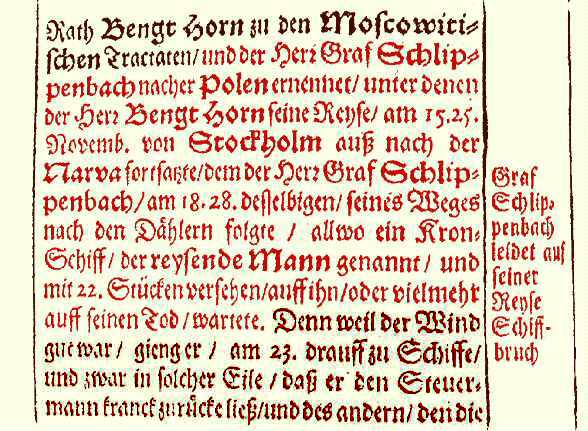 Rath Bengt Horn zu den Moscowiti-
schen Tractaten/und der Herr Graf Schlip-
penbach nacher Polen ernennet/ unter denen
der Herr Bengt Horn seine Reyse/ am 15.25.
Novemb. von Stockholm auß nach der
Narva fortsatzte/dem der Herr Graf Schlip-
penbach/am 18.28. desselbigen/ seines Weges
nach den Dählern folgte / allwo ein Kron-
Schiff/ der reysende Mann genannt/ und
mit 22. Stücken versehen/auff ihn/oder vielmehr
auff seinen Tod/wartete. Denn weil der Wind
gut war/ gieng er/ am 23. drauff zu Schiffe/
und zwar in solcher Eile/ daß er den Steuer-
mann kranck zurücke ließ/und des andern/ den die
Graf
Schlip-
penbach
leidet auf
seiner
Reyse
Schiff-
bruch